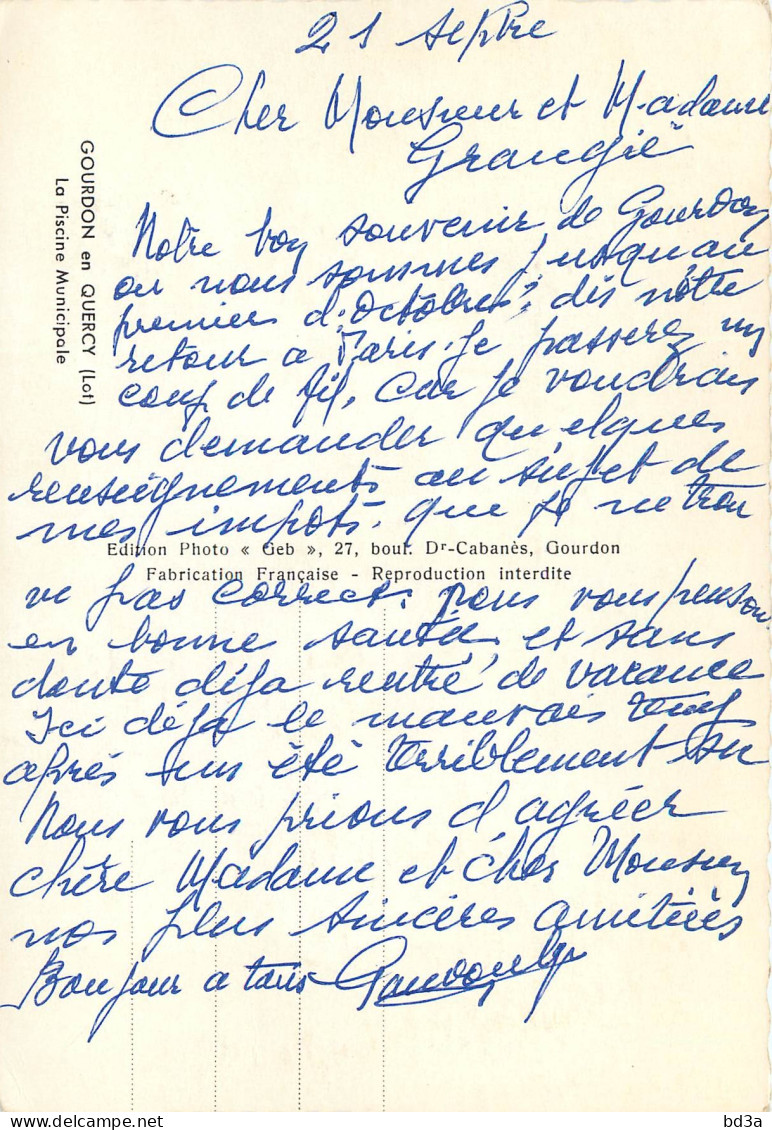 21 septre
Cher Monsieur et Madame
Grangié
Notre bon souvenir de Gourdon
ou nous sommes jusqu'au
premiers d'octobres, dès nôtre
retour a Paris. je passerez un
coup de fil, car je voudrais
vous demander quelques
renseignements au sujet de
mes impôts. que je ne trou
ve pas correct. nous vous penson
en bonne santé, et sans
doute déja rentré de vacance
Ici déja le mauvais temps
après un été terriblement
Nous vous prions d'agréer
chère Madame et cher Monsieur
nos plus sincères amitiés
Bonjour a tous
GOURDON en QUERCY (Lot)
La Piscine Municipale
Edition Photo « Geb », 27, boul. Dr-Cabanès, Gourdon
Fabrication Française - Reproduction interdite
bd3a